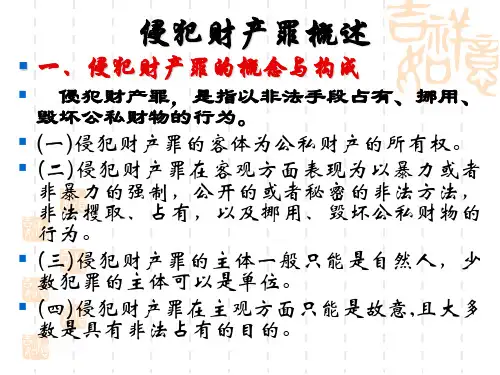 侵犯财产罪概述
一、侵犯财产罪的概念与构成
侵犯财产罪，是指以非法手段占有、挪用、
毁坏公私财物的行为。
(一)侵犯财产罪的客体为公私财产的所有权。
(二)侵犯财产罪在客观方面表现为以暴力或者
非暴力的强制，公开的或者秘密的非法方法，
非法攫取、占有，以及挪用、毁坏公私财物的
行为。
(三)侵犯财产罪的主体一般只能是自然人，少
数犯罪的主体可以是单位。
(四)侵犯财产罪在主观方面只能是故意,且大多
数是具有非法占有的目的。
吉祥
如意